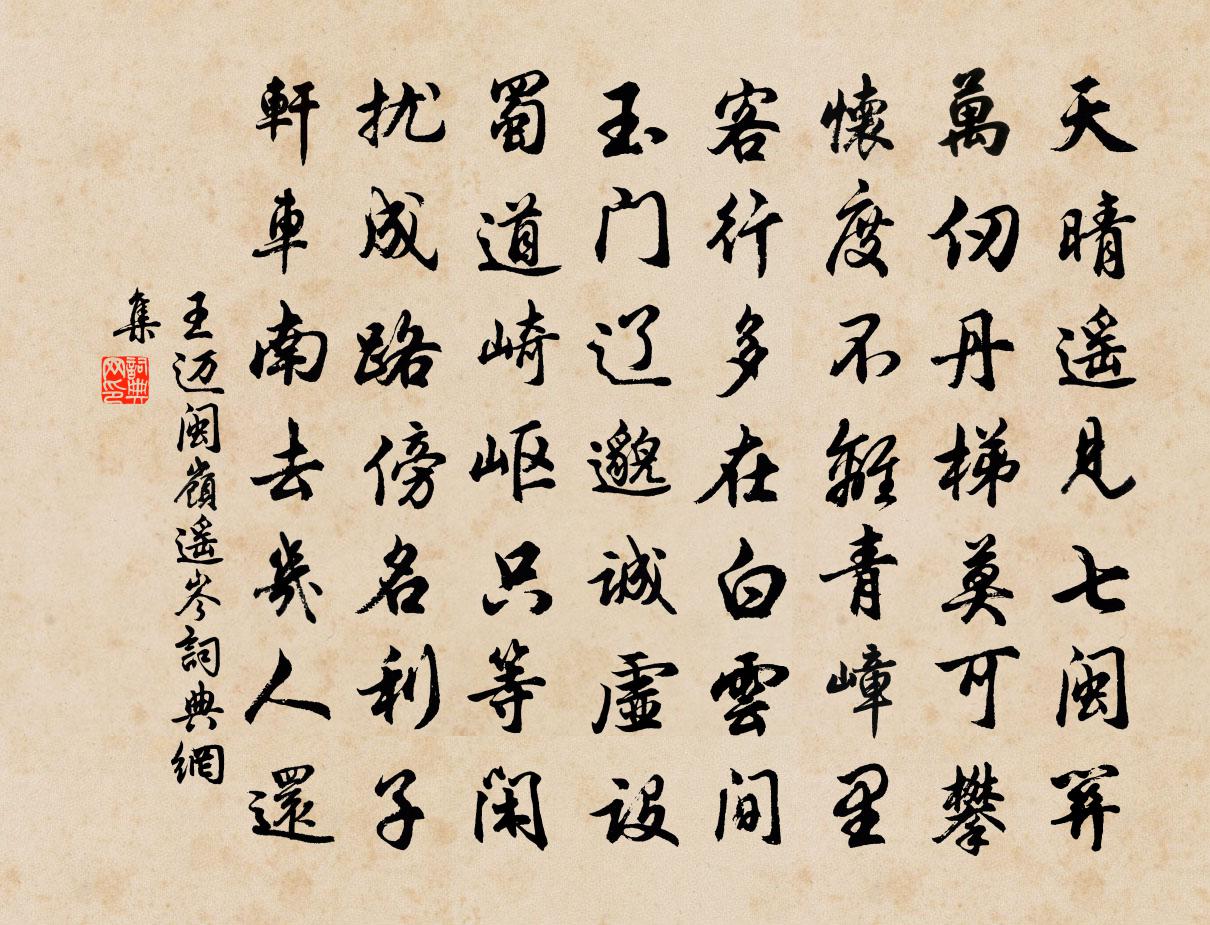 天晴遥見七闽关
萬仞丹梯莫可攀
懷度不離青嶂里
客行多在白雲间
玉门辽邈誠虚設
蜀道崎岖只等闲
扰成路傍名利子
軒車南去幾人還
王迈闽嶺遥岑詞典網
集
詞典网印